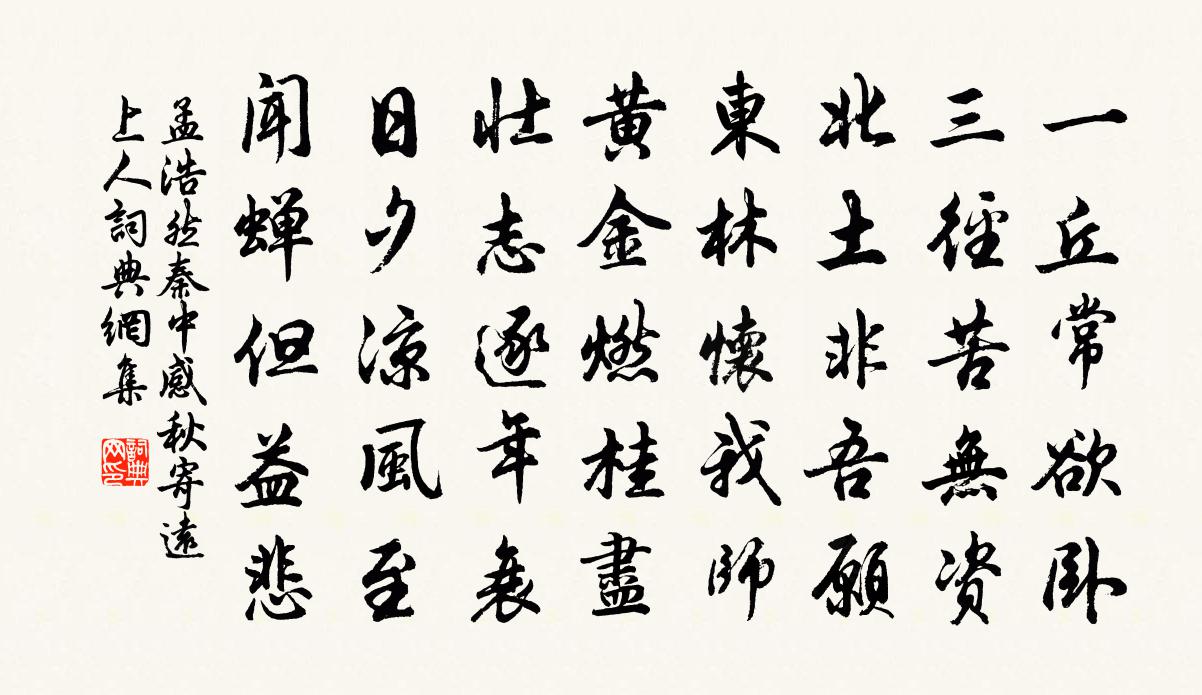 一丘常欲卧
三徑苦無資
北土非吾願
東林懷我師
黃金燃桂盡
壯志逐年衰
日夕涼風至
聞蟬但益悲
孟浩然秦中感秋寄遠
上人詞典網集
詞典
网印